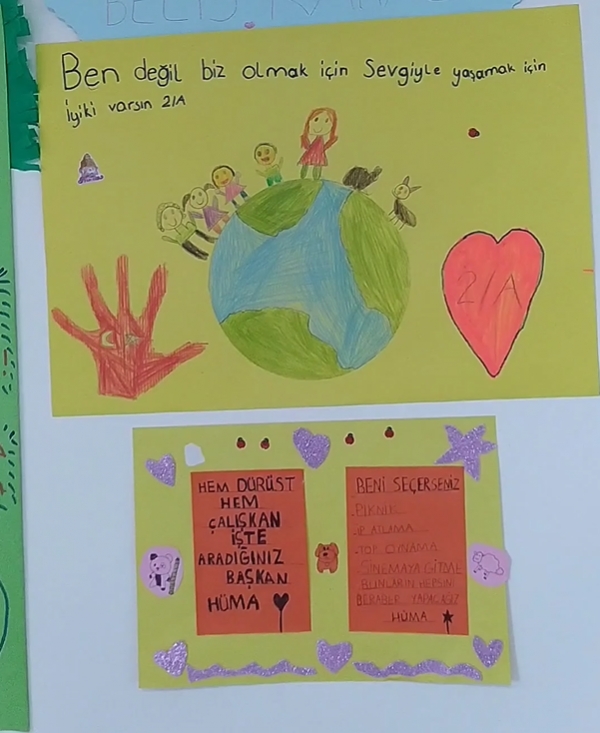 Ben değil biz olmak için Sevgiyle yaşamak için
İyiki varsın 2/A
2/A
HEM DÜRÜST
HEM
ÇALIŞKAN
İŞTE
ARADIĞINIZ
BAŞKAN
HÜMA
BENİ SEÇERSENİZ
.PİKNİK
.İP ATLAMA
.TOP OYNAMA
SİNEMAYA GİTME
BUNLARIN HEPSİNİ
BERABER YAPACAĞIZ
HÜMA